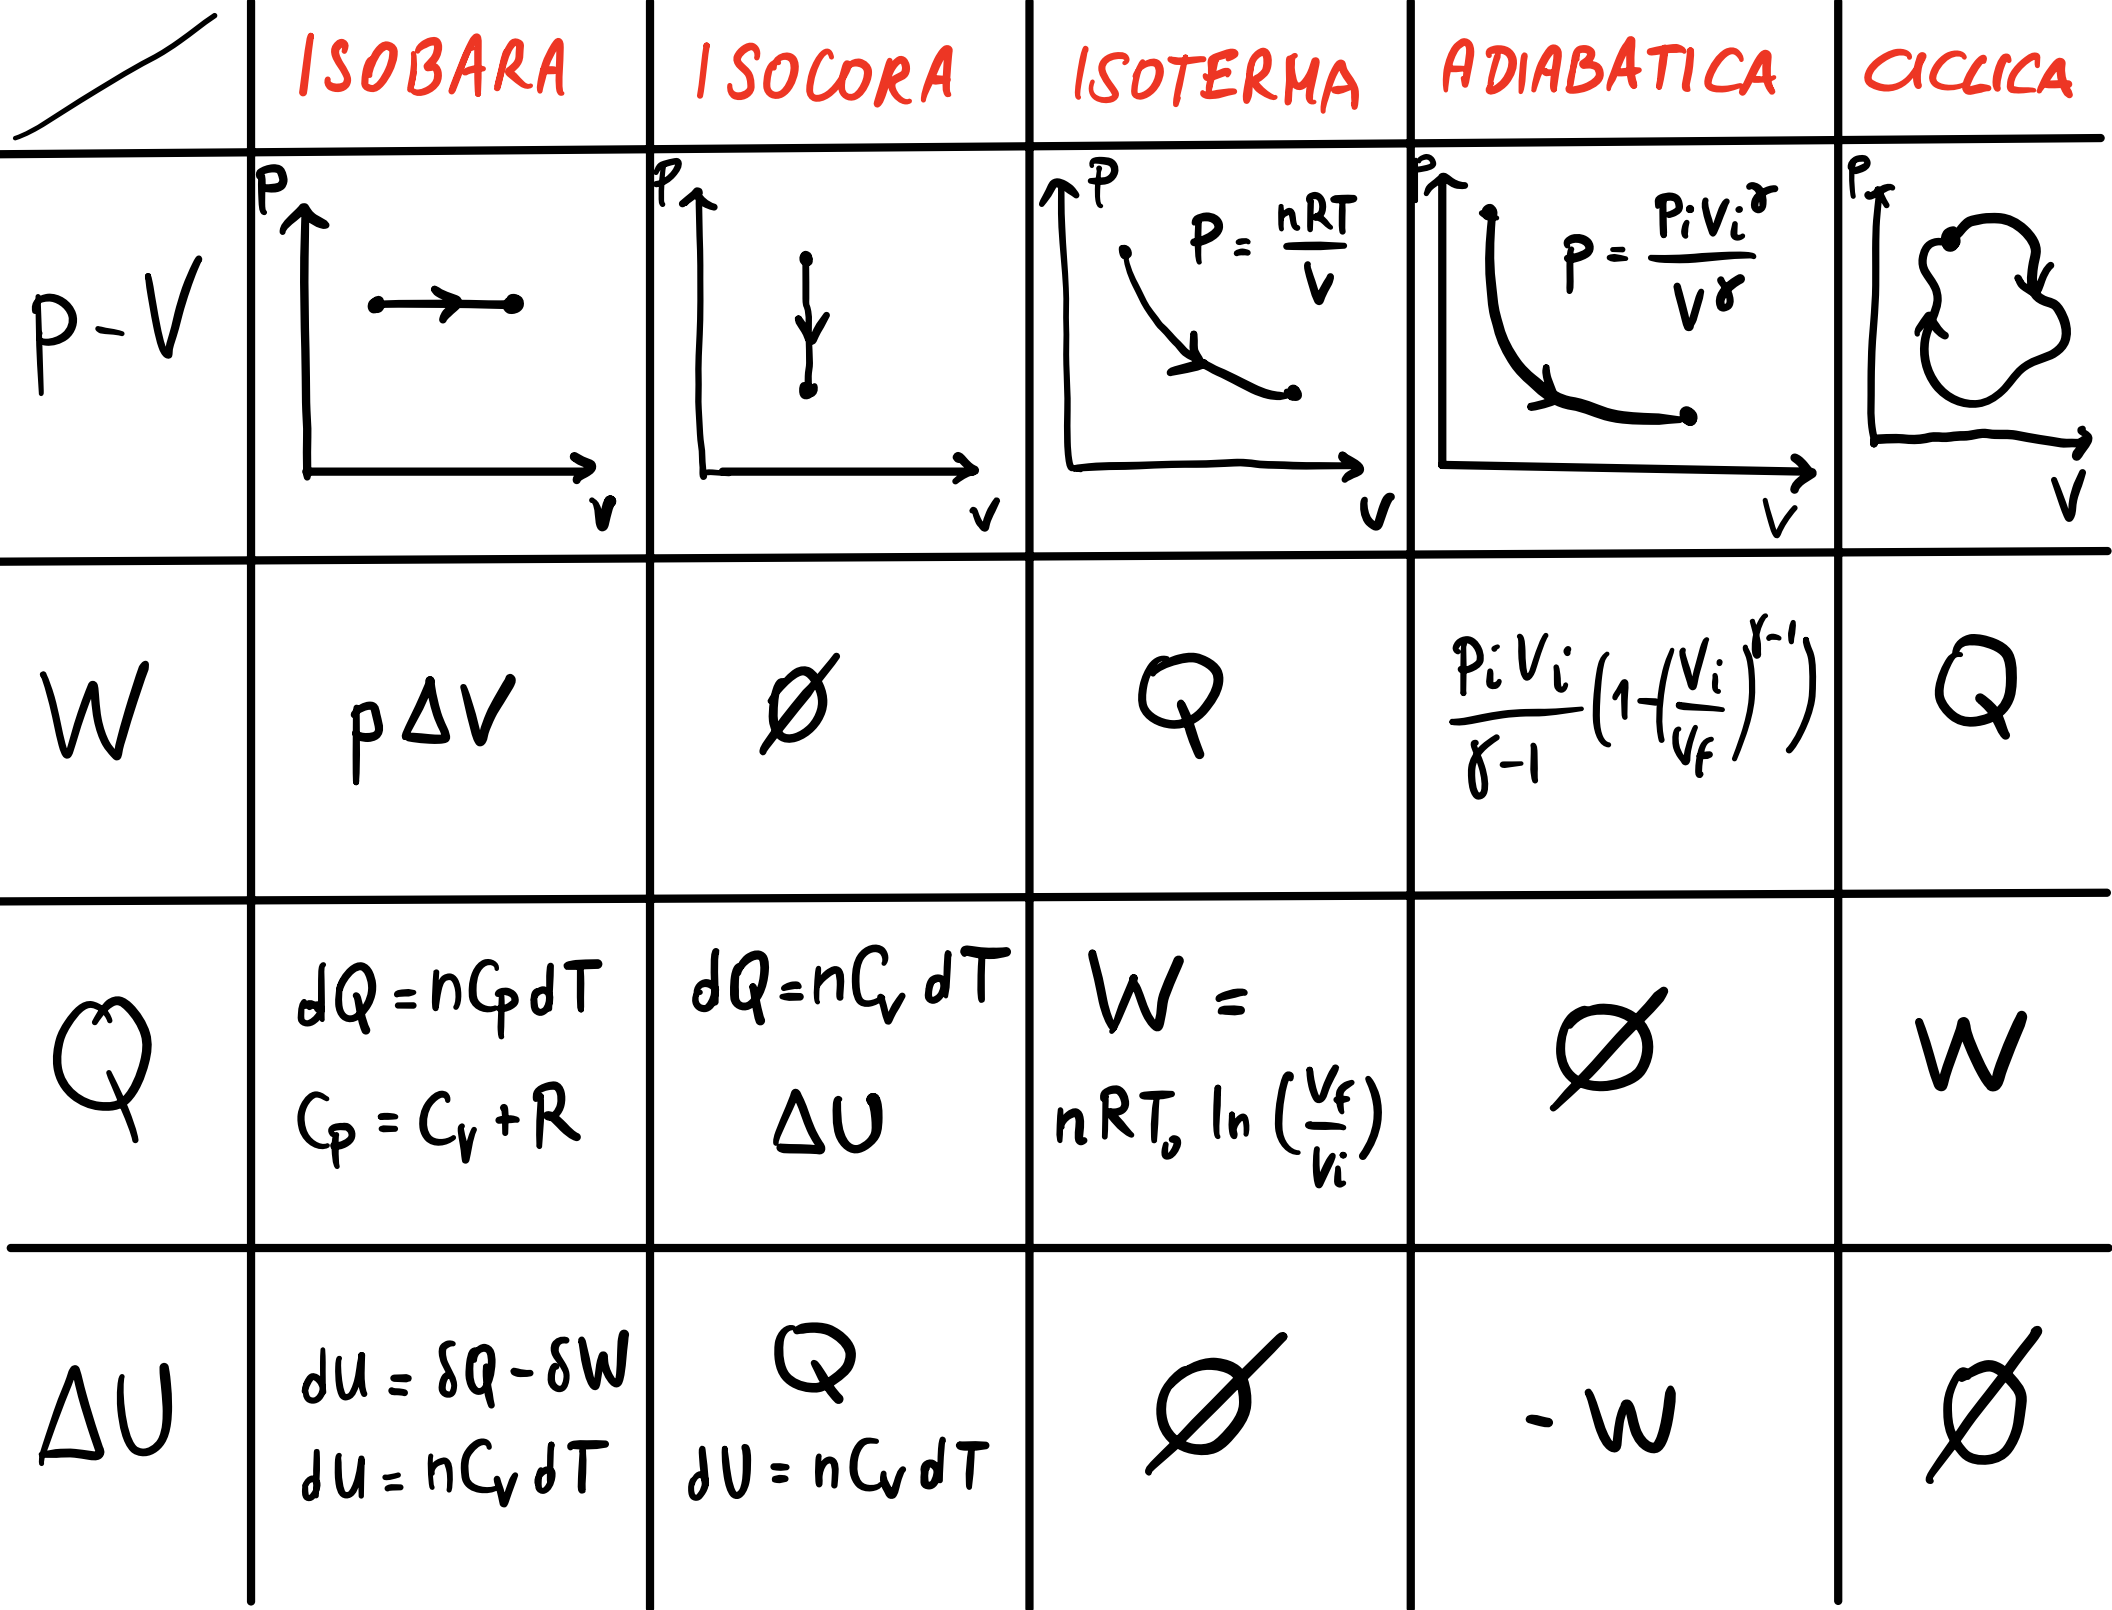 ISOBARA ISOCORA ISOTERMA ADIABATICA CICLICA
p-V
P
V
P
V
P
P = nRT/V
V
P
P = PiVi^γ/V^γ
V
P
V
W
pΔV
Ø
Q
PiVi/(γ-1) (1-(Vi/Vf)^(γ-1))
Q
Q
dQ = nCp dT
Cp = Cv + R
dQ = nCv dT
ΔU
W =
nRT₀ ln (Vf/Vi)
Ø
W
ΔU
dU = δQ - δW
dU = nCv dT
Q
dU = nCv dT
Ø
-W
Ø